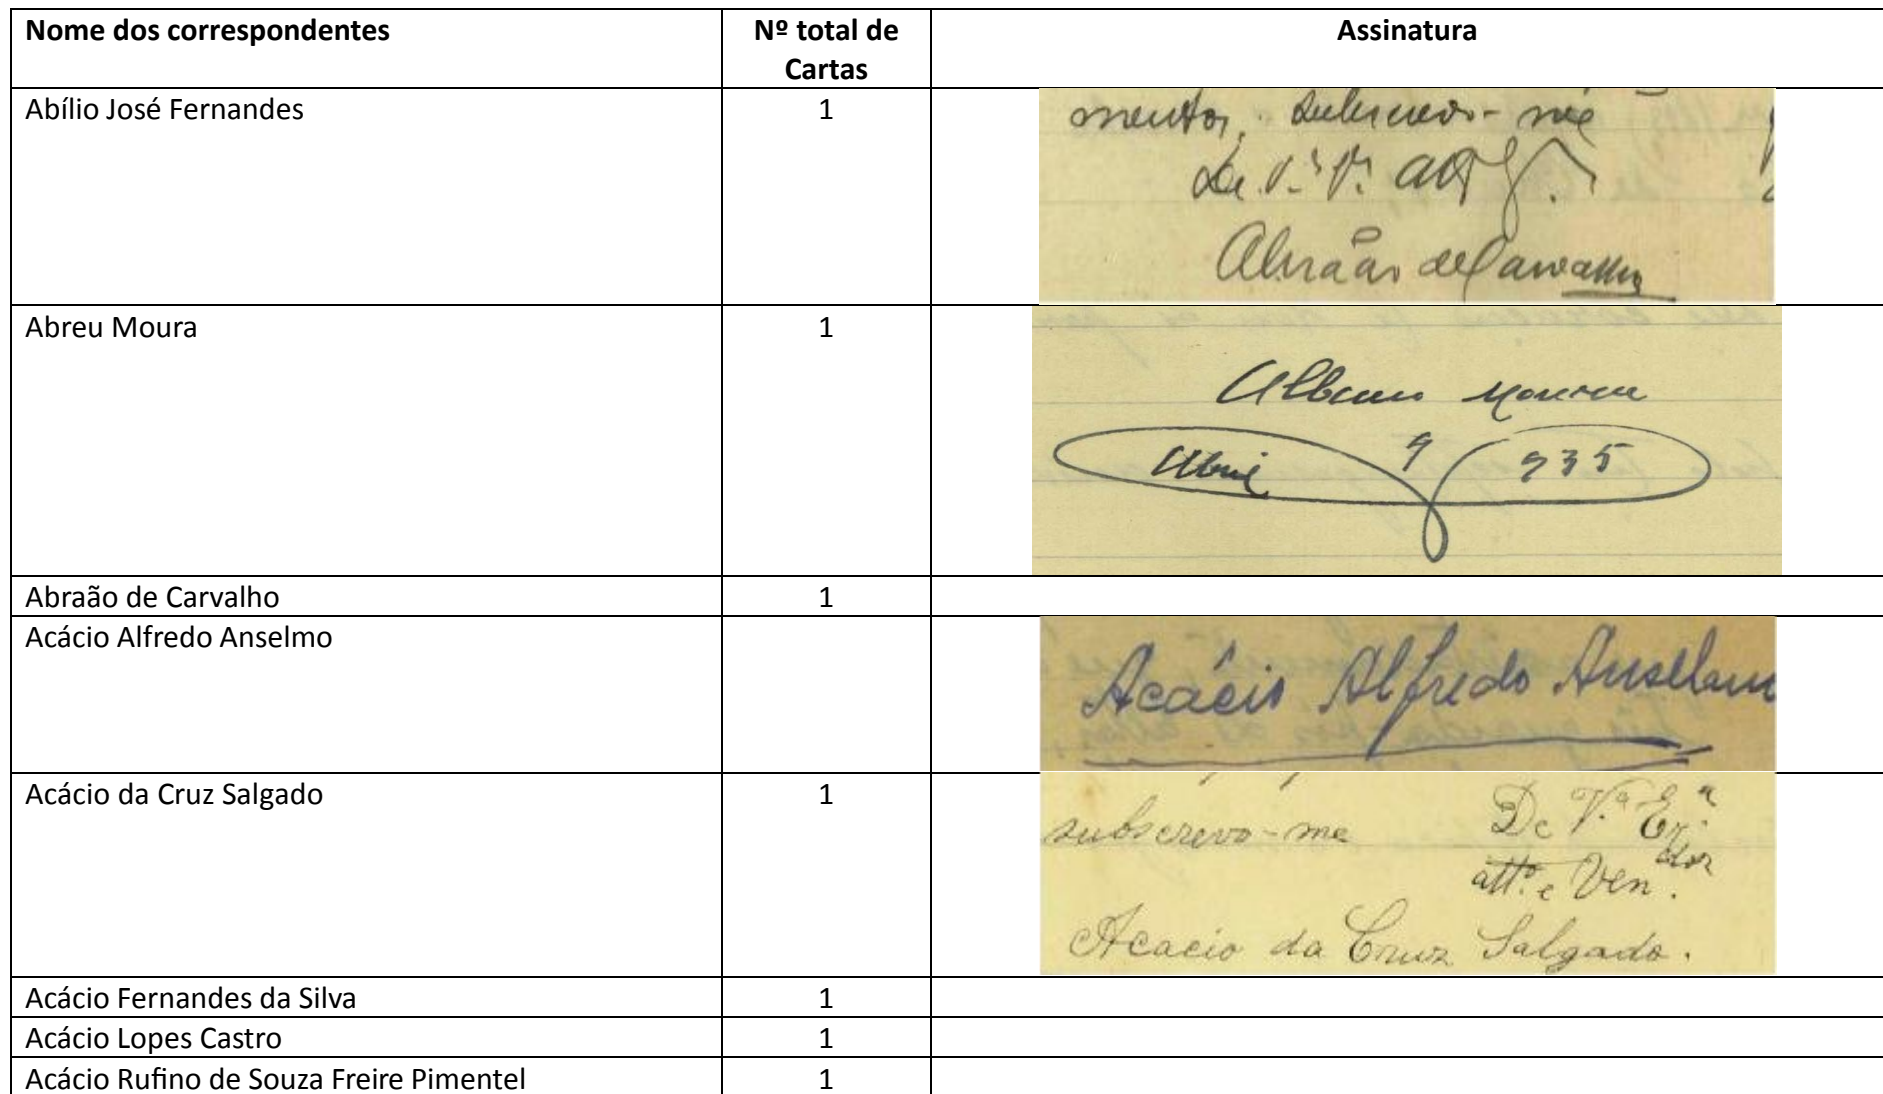 Nome dos correspondentes
Nº total de
Cartas
Assinatura
Abílio José Fernandes
1
mentos, subscrevo-me
De V.ª
Abraão de Carvalho
Abreu Moura
1
Albano Moura
Abril 9 935
Abraão de Carvalho
1
Acácio Alfredo Anselmo
Acácio Alfredo Anselmo
Acácio da Cruz Salgado
1
subscrevo-me De V.ª Ex.ª
att.º e Ven.dor
Acacio da Cruz Salgado.
Acácio Fernandes da Silva
1
Acácio Lopes Castro
1
Acácio Rufino de Souza Freire Pimentel
1